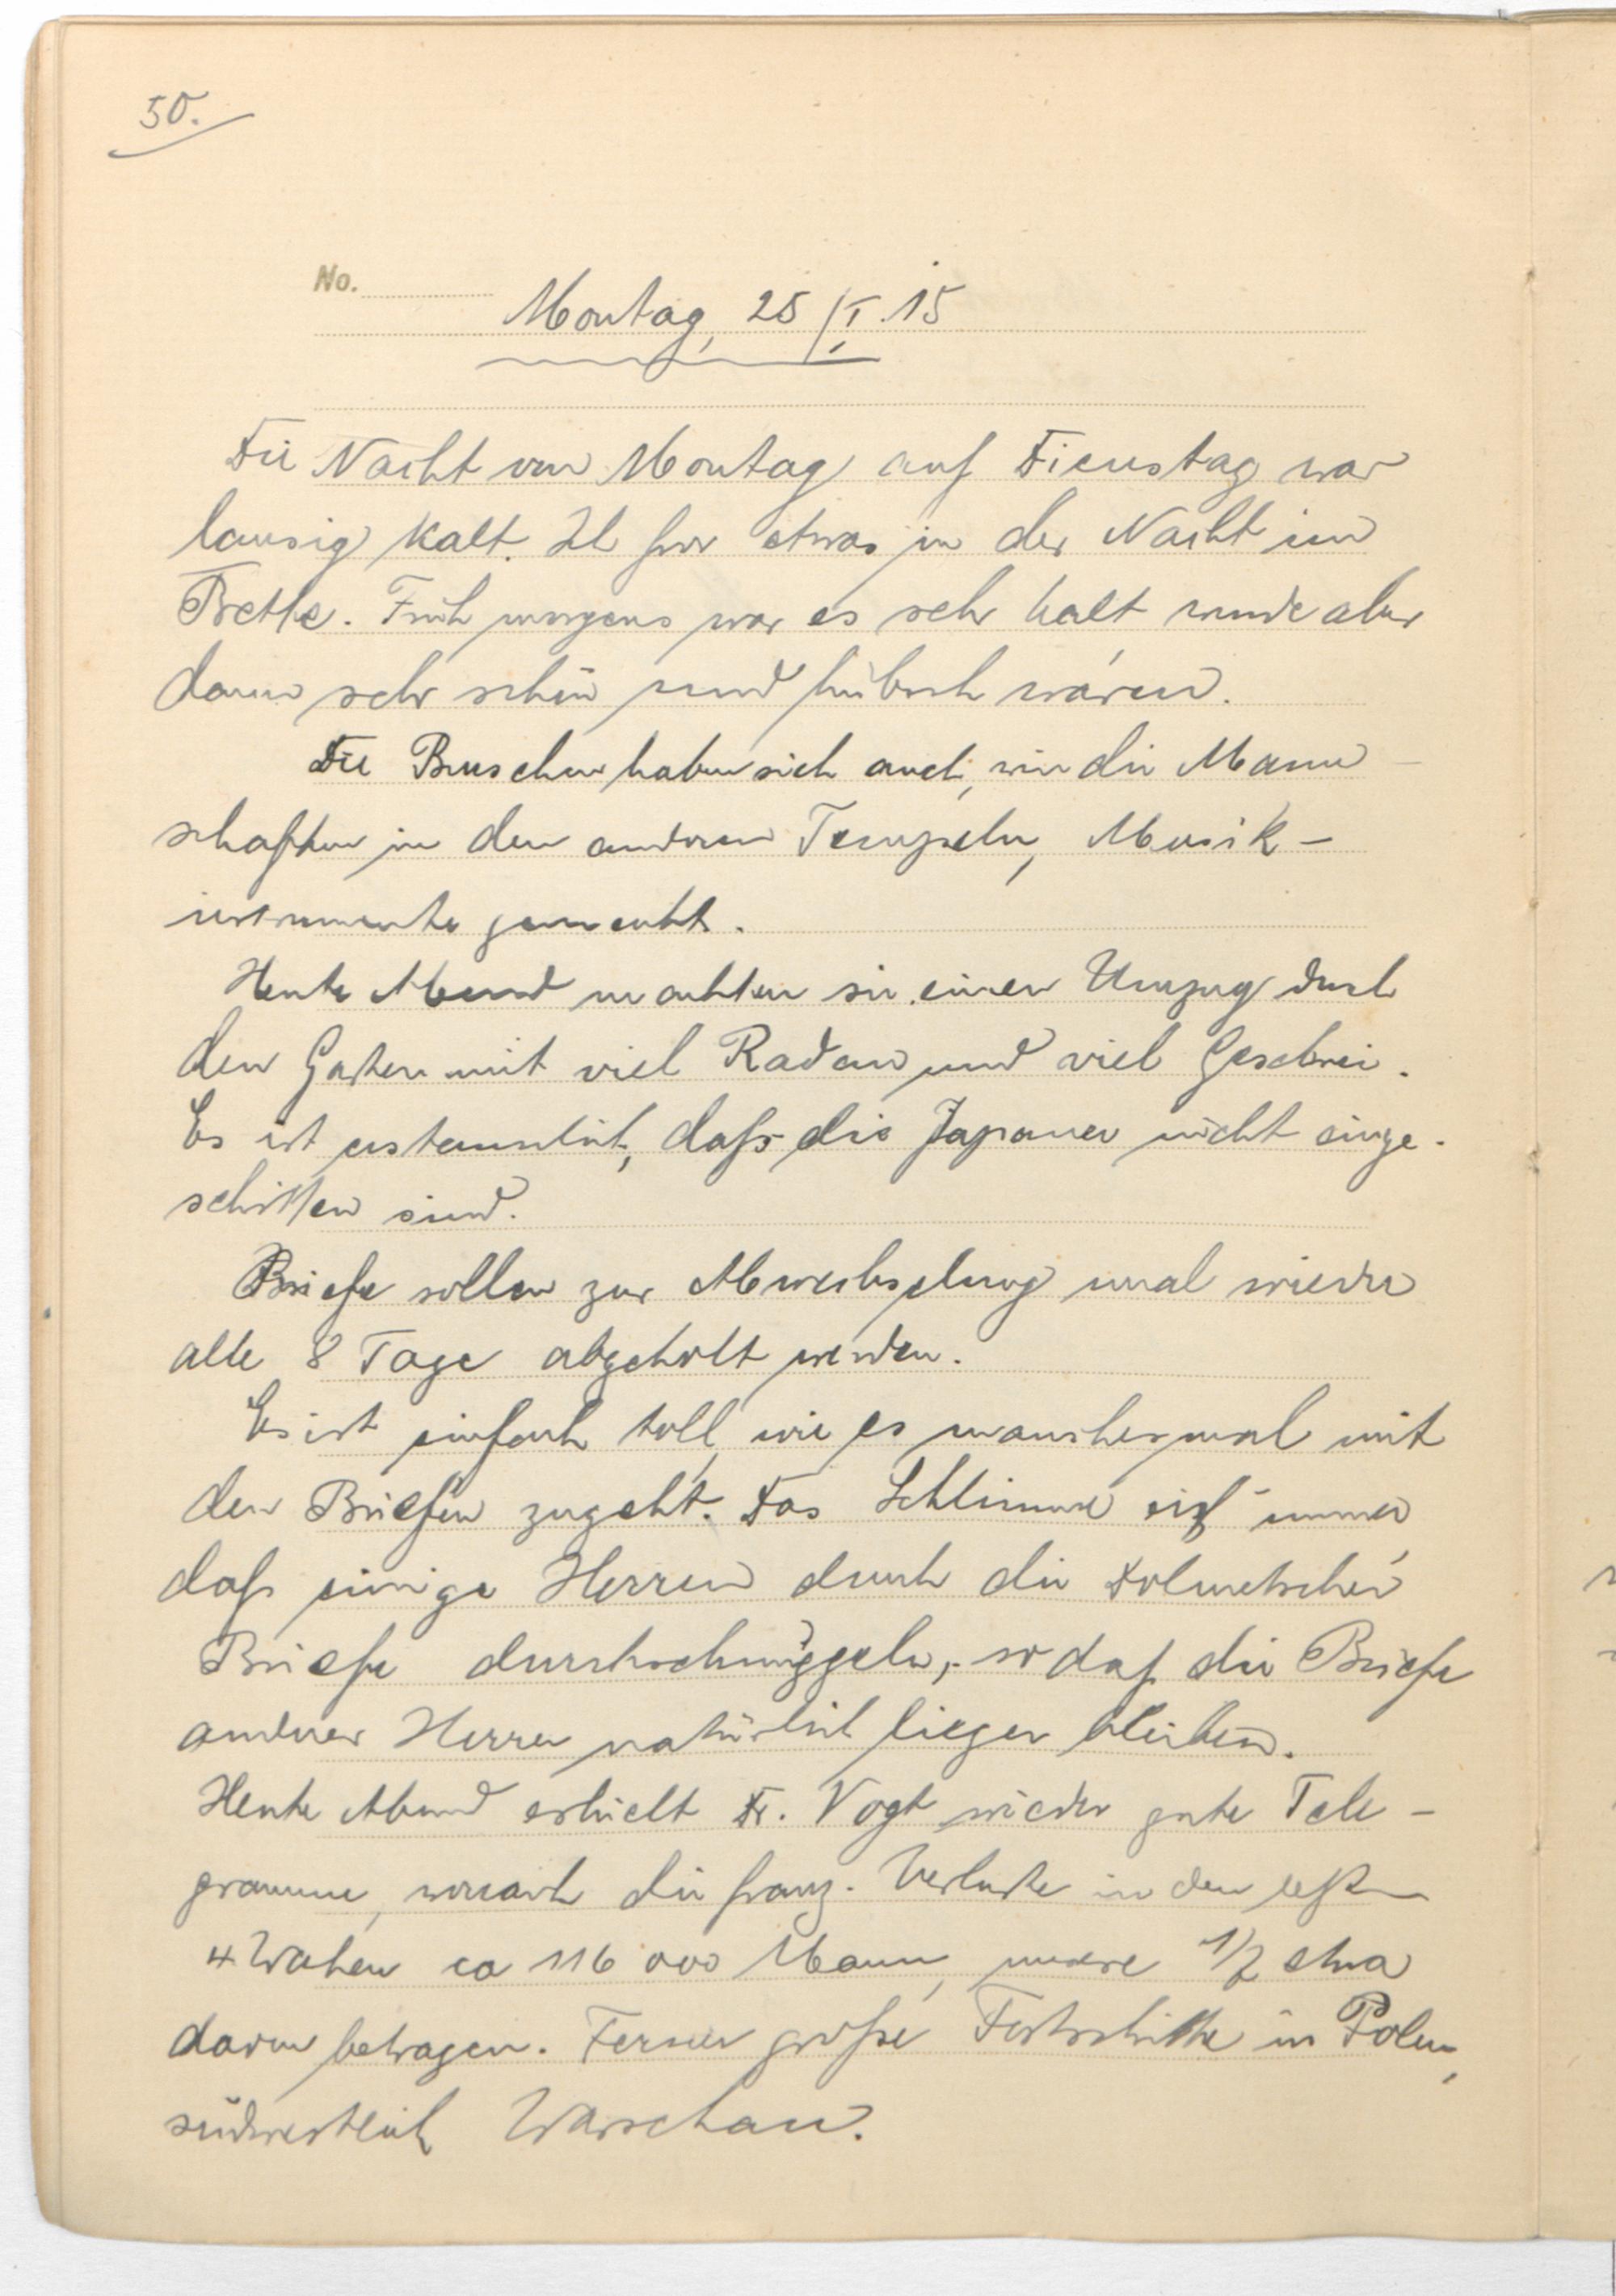 50.
No.
Montag, 25/I.15
Die Nacht von Montag auf Dienstag war
lausig kalt. Ich fror etwas in der Nacht im
Bette. Früh morgens war es sehr kalt wurde aber
dann sehr schön und hübsch warm.
Die Burschen haben sich auch, wie die Mann-
schaften in den anderen Tempeln, Musik-
instrumente gemacht.
Heute Abend machten sie einen Umzug durch
den Garten mit viel Radau und viel Geschrei.
Es ist erstaunlich, daß die Japaner nicht einge-
schritten sind.
Briefe sollen zur Abwechselung mal wieder
alle 8 Tage abgeholt werden.
Es ist einfach toll, wie es manchesmal mit
den Briefen zugeht. Das Schlimme ist immer,
daß einige Herren durch die Dolmetscher
Briefe durchschmuggeln, so daß die Briefe
anderer Herren natürlich liegen bleiben.
Heute Abend erhielt Dr. Vogt wieder gute Tele-
gramme, wonach die franz. Verluste in den letzten
4 Wochen ca 116 000 Mann, unsere 1/2 etwa
davon betragen. Ferner große Fortschritte in Polen,
südwestlich Warschau.